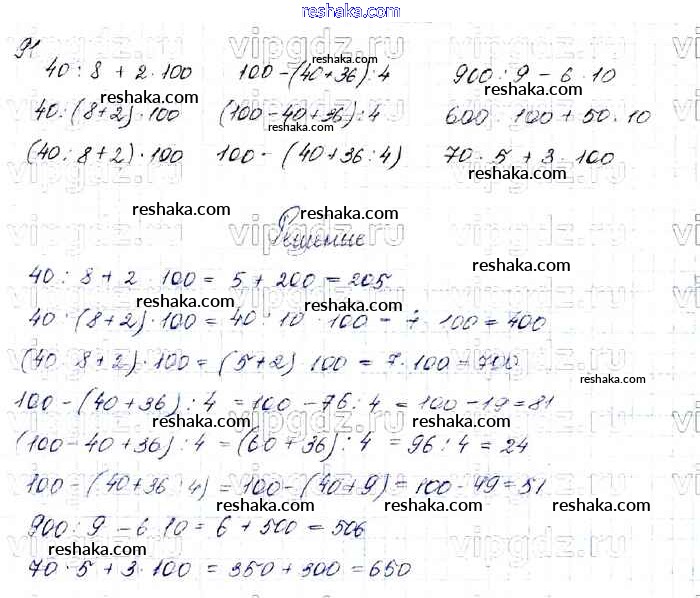 reshaka.com
91
40 : 8 + 2 · 100    100 - (40 + 36) : 4    900 : 9 - 6 · 10
40 : (8+2) · 100    (100 - 40 + 36) : 4    600 : 100 + 50 · 10
(40 : 8+2) · 100    100 - (40 + 36 : 4)    70 · 5 + 3 · 100
Решение
40 : 8 + 2 · 100 = 5 + 200 = 205
40 : (8+2) · 100 = 40 : 10 · 100 = · 100 = 400
(40 : 8+2) · 100 = (5+2) · 100 = 7 · 100 = 700
100 - (40+36) : 4 = 100 - 76 : 4 = 100 - 19 = 81
(100 - 40 + 36) : 4 = (60 + 36) : 4 = 96 : 4 = 24
100 - (40+36 : 4) = 100 - (40+9) = 100 - 49 = 51
900 : 9 - 6 · 10 = 6 + 500 = 506
70 · 5 + 3 · 100 = 350 + 300 = 650